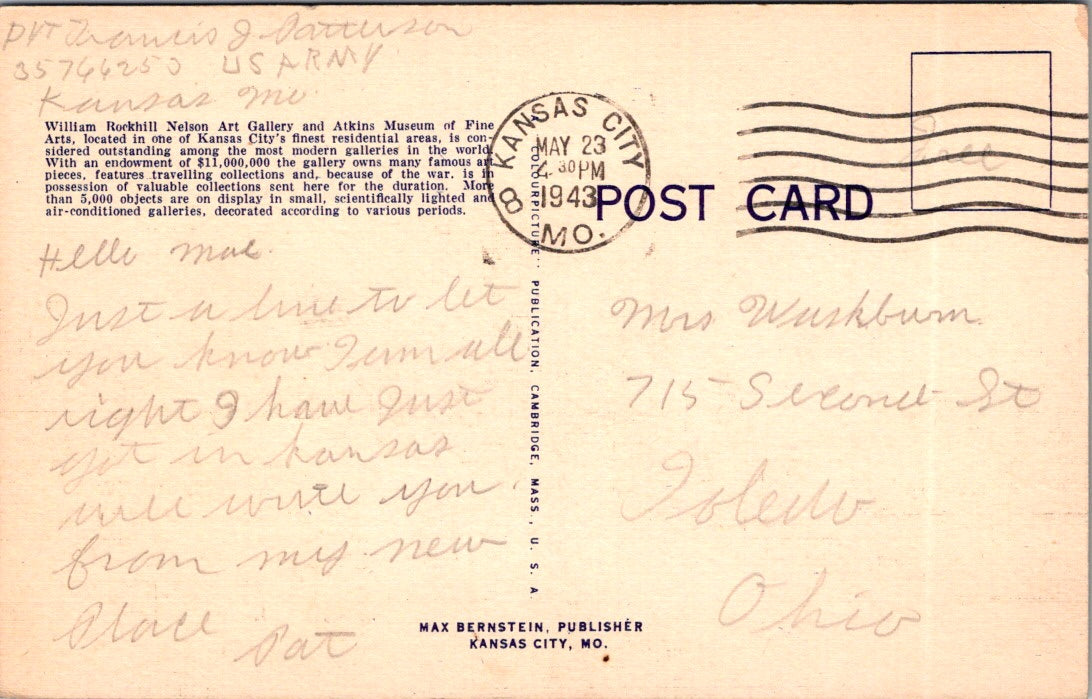 Pvt Francis J Patterson
35766250 US ARMY
Kansas Mo
William Rockhill Nelson Art Gallery and Atkins Museum of Fine
Arts, located in one of Kansas City's finest residential areas, is con-
sidered outstanding among the most modern galleries in the world.
With an endowment of $11,000,000 the gallery owns many famous art
pieces, features travelling collections and, because of the war. is in
possession of valuable collections sent here for the duration. More
than 5,000 objects are on display in small, scientifically lighted and
air-conditioned galleries, decorated according to various periods.
Hello Mae
Just a line to let
you know I am all
right I have Just
got in Kansas
will write you
from my new
Place
Pat
KANSAS CITY
MAY 23
4 30 PM
1943
MO.
8
"COLOURPICTURE" PUBLICATION, CAMBRIDGE, MASS., U. S. A
POST CARD
Free
Mrs Washburn
715 Second St
Toledo
Ohio
MAX BERNSTEIN, PUBLISHER
KANSAS CITY, MO.